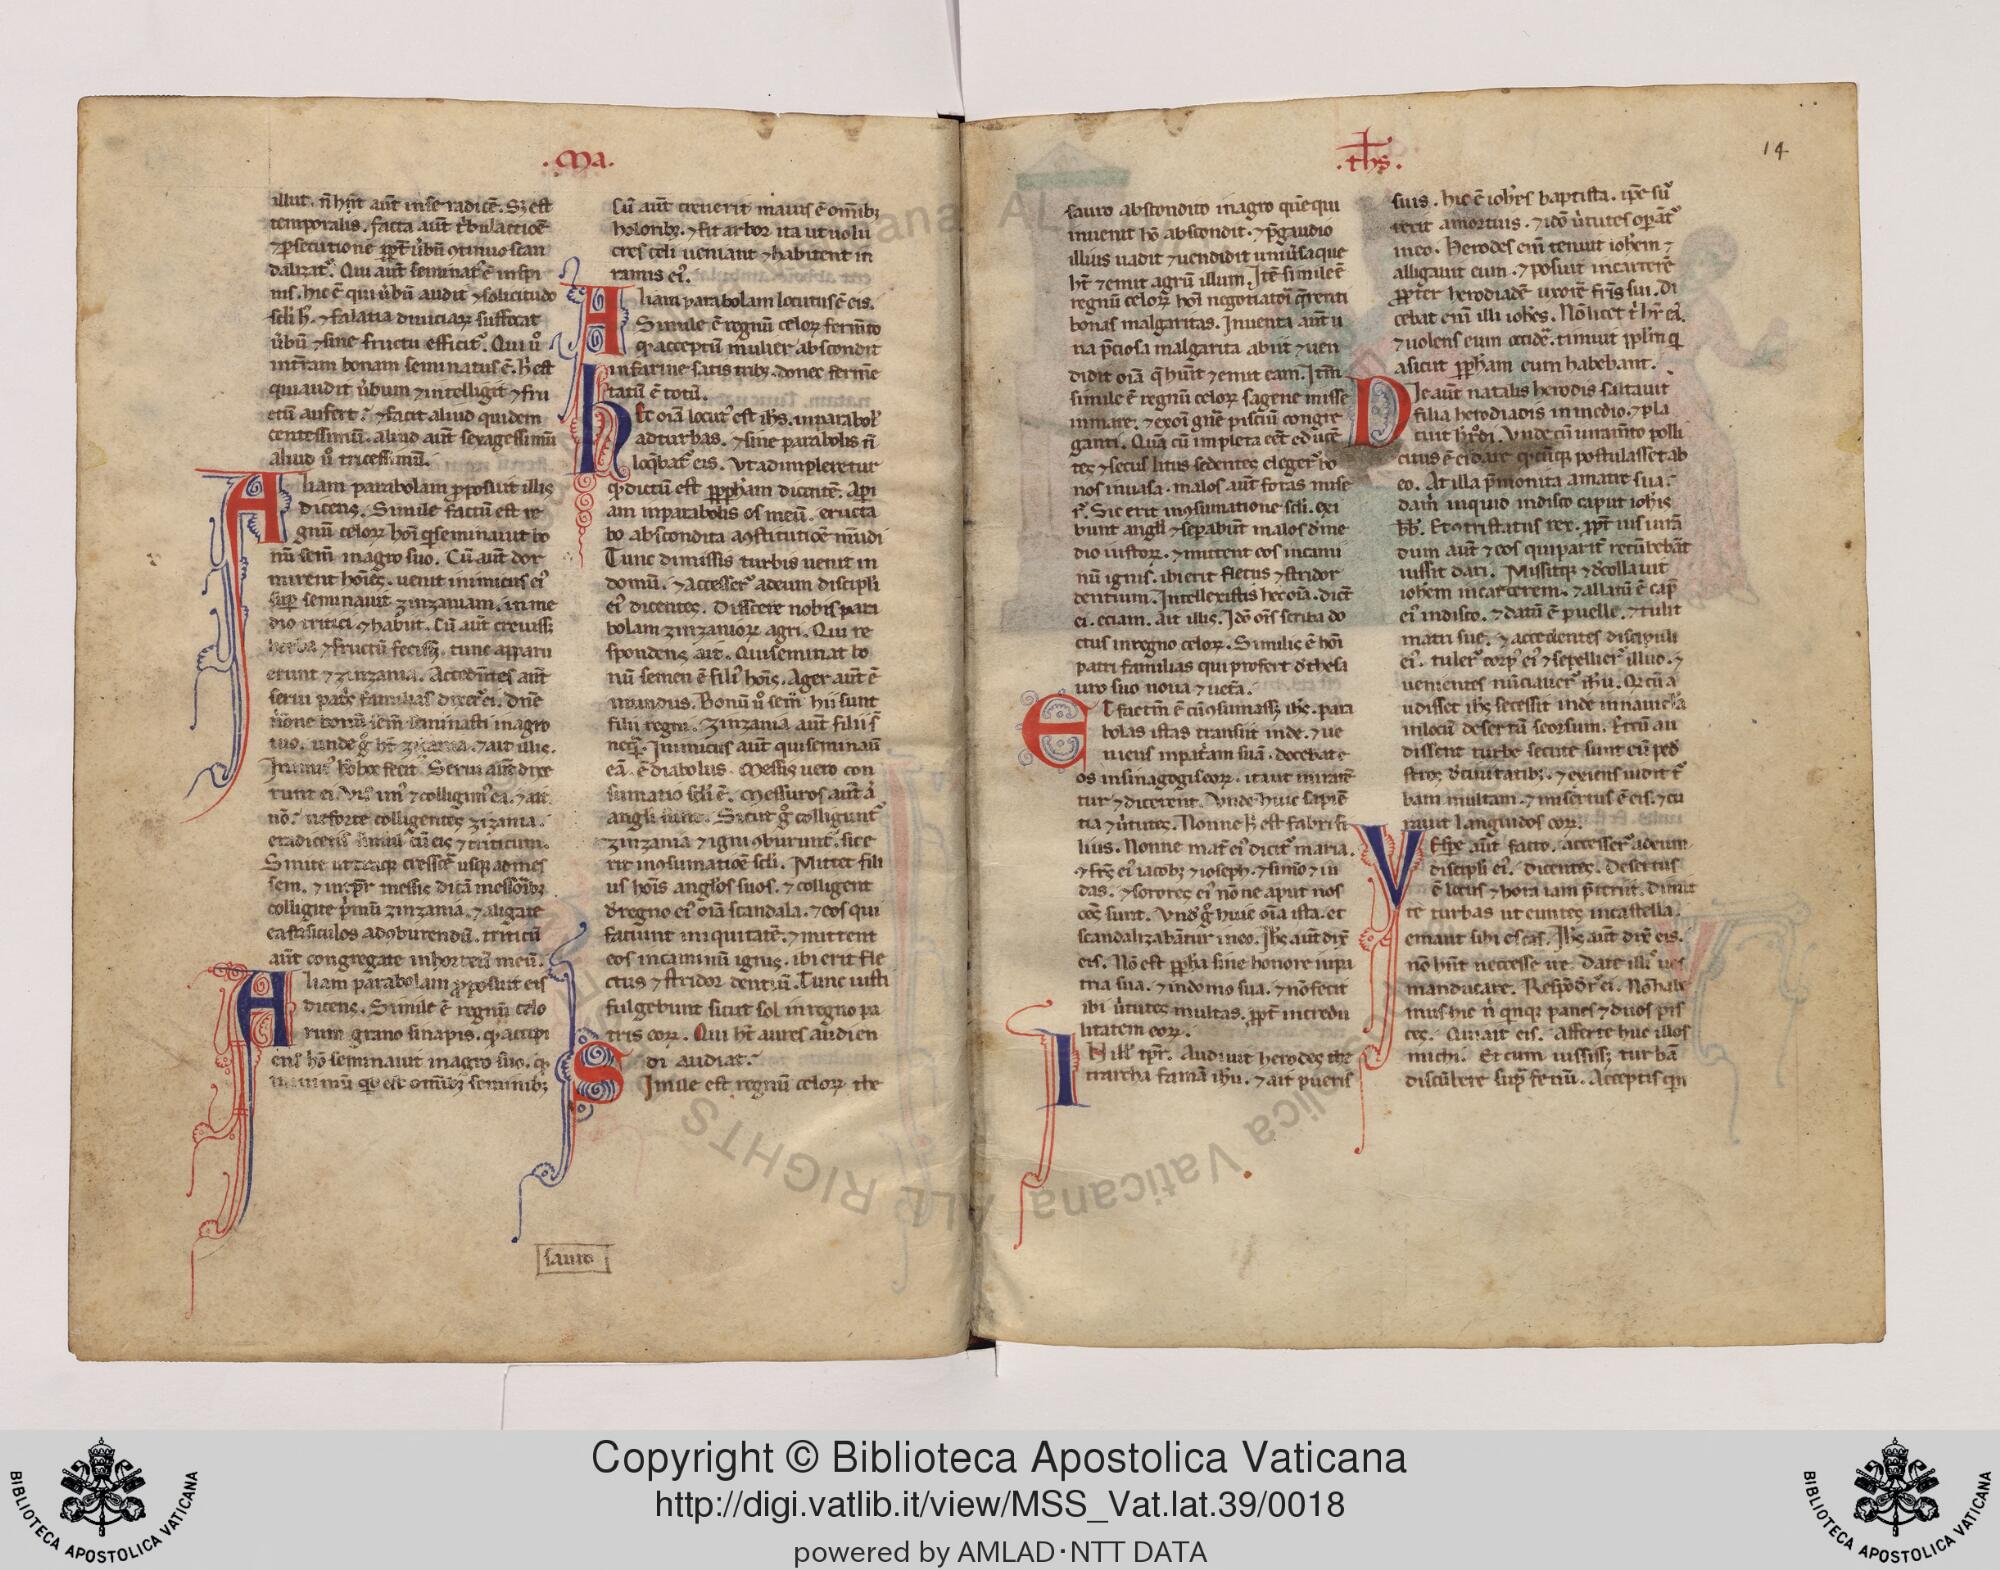 .Ma.
illut. n̄ hn̄t aūt in se radicē. Sȝ est
temporalis. facta aūt t̾bulatiōe
⁊ ꝑsecutione ꝓpt̾ ūbū ꝯtinuo scan
dalizat᷑. Qui aūt seminat᷒ ē in spi
nis. hic ē qui ūbū audit ⁊ solicitudo
scl̾i h̾. ⁊ falatia diuiciaꝝ suffocat
ūbū ⁊ sine fructu efficit᷑. Qui ū̊
in t̾ram bonam seminatus ē. h̾ est
qui audit ūbum ⁊ intelligit ⁊ fru
ctū aufert. ⁊ facit aliud quidem
centessimū. aliud aūt sexagessimū
aliud ū̊ tricessimū.
Aliam parabolam proposuit illis
dicens. Simile factū est re
gnū celoꝝ hōi q̾ seminauit bo
nū sem̄ in agro suo. Cū aūt dor
mirent hoīes. uenit inimicus ei᷒
suꝑ seminauit zinzaniam. in me
dio tritici ⁊ habiit. Cū aūt creuissȝ
herba ⁊ fructū fecissȝ. tunc apparu
erunt ⁊ zinzania. Accedn̄tes aūt
serui pat̾s familias dixer̄t ei. dn̄e
nōne bonū sem̄ seminasti in agro
tuo. unde g̊ ht̄ zizania. ⁊ ait illis.
Inimic᷒ hō hoc fecit. Serui aūt dixe
runt ei. Vis im᷒ ⁊ colligim᷒ ea. ⁊ ait
nō. ne forte colligentes zizania.
eradicetis simul cū eis ⁊ triticum.
Sinite utraque crescer̄ usqȝ ad mes
sem. ⁊ in tp̄r messis dicā messoribȝ
colligite p̾mū zinzania. ⁊ aligate
ea fasiculos ad ꝯburendū. triticū
aūt congregate in horreū meū.
Aliam parabolam proposuit eis
dicens. Simile ē regnū celo
rum grano sinapis. q̊ accipi
ens hō seminauit in agro suo. q̊
minimū q̾ est omībȝ seminibȝ
sū aūt creuerit maius ē omībȝ
holoribȝ. ⁊ fit arbor ita ut uolu
cres celi ueniant ⁊ habitent in
ramis ei᷒.
Aliam parabolam locutus ē eis.
Simile ē regnū celoꝝ ferm̄to
q̊ acceptū mulier abscondit
in farine satis tribȝ. donec ferme
tatū ē totū.
Hec oīa locut᷒ est ih̄s. in parabol̾
ad turbas. ⁊ sine parabolis n̄
loq̄bat᷑ eis. Vt adimpleretur
q̊ dictū est ꝓph̄am dicentē. Apī
am in parabolis os meū. eructa
bo abscondita a ꝯstitutiōe mūdi
Tunc dimissis turbis uenit in
domū. ⁊ accesser̄t ad eum discipl̾i
ei᷒ dicentes. Disscere nobis para
bolam zinzanioꝝ agri. Qui re
spondens ait. Qui seminat bo
nū semen ē fili᷒ hoīs. Ager aūt ē
mundus. Bonū ū̊ sem̄ hii sunt
filii regni. Zinzania aūt filii s̄
neq̄. Inimicus aūt qui seminau̅
eā. ē diabolus. Messis uero con
sumatio scl̾i ē. Messuros aūt
angl̾i sunt. Sicut g̊ colligunt᷑
zinzania ⁊ igni ꝯburunt᷑. sic e
rit in ꝯsumatiōe scl̾i. Mittet fili
us hoīs angl̾os suos. ⁊ colligent
d̄ regno ei᷒ oīa scandala. ⁊ eos qui
faciunt iniquitatē. ⁊ mittent
eos in caminū ignis. ibi erit fle
ctus ⁊ stridor dentiū. Tunc iusti
fulgebunt sicut sol in regno pa
tris eoꝝ. Qui ht̄ aures audien
di audiat.
Simile est regnū celoꝝ the
sauro
.ths.
14
sauro abscondito in agro quē qui
inuenit hō abscondit. ⁊ p̄ gaudio
illius uadit ⁊ uendidit uniūsa que
ht̄ ⁊ emit agrū illum. Itē simile ē
regnū celoꝝ hōi negotiatori q̄renti
bonas malgaritas. Inuenta aūt u
na p̄ciosa malgarita abiit ⁊ uen
didit oīa q̄ huīt ⁊ emit eam. Itm̄
simile ē regnū celoꝝ sagene misse
in mare. ⁊ ex oī gn̄e pisciū congre
ganti. Quā cū impleta eēt educē
tes ⁊ secus litus sedentes eleger̄t bo
nos in uasa. malos aūt foras mise
r̄t. Sic erit in ꝯsumatione scl̾i. exi
bunt angl̾i ⁊ seꝑabūt malos d̾ me
dio iustoꝝ. ⁊ mittent eos in cami
nū ignis. ibi erit fletus ⁊ stridor
dentium. Intellexistis hec oīa. dicūt
ei. eciam. Ait illis. Idō oīs scriba do
ctus in regno celoꝝ. Similis ē hōi
patri familias qui profert d̾ thesa
uro suo noua ⁊ uet̾a.
Et factū ē cū ꝯsumassȝ ih̄s. para
bolas istas transiit inde. ⁊ ue
niens in pat̾am suā. docebat e
os in sinagogis eoꝝ. ita ut mirarē
tur ⁊ dicerent. Vnde huic sapiē
tia ⁊ ūtutes. Nonne h̾ est fabri fi
lius. Nonne mat̾ ei᷒ dicit᷑ maria.
⁊ fr̄s ei᷒ iacobȝ ⁊ ioseph. ⁊ simō ⁊ iu
das. ⁊ sorores ei᷒ nōne aput nos
oēs sunt. Vnd̾ g̊ huic oīa ista. et
scandalizabātur in eo. Ih̄s aūt dix̄
eis. Nō est ꝓph̄a sine honore in pa
tria sua. ⁊ in domo sua. ⁊ nō fecit
ibi ūtutes multas. ꝓpt̾ incredu
litatem eoꝝ.
In ill̾ tp̄r. Audiuit herodes the
trarcha famā ih̄u. ⁊ ait pueris
suis. hic ē ioh̄es baptista. ip̄e su̾
rexit a mortuis. ⁊ idō ūtutes oꝑāt᷑
in eo. Herodes eni̅ tenuit ioh̄em ⁊
alligauit eum. ⁊ posuit in carcerē
ꝓpter herodiadē uxorē fr̄is sui. Di
cebat eni̅ illi ioh̄es. Nō licet t̾ h̾r eā.
⁊ uolens eum occidē. timuit ipl̾m q̾
a sicut ꝓph̄am eum habebant.
Die aūt natalis herodis saltauit
filia herodiadis in medio. ⁊ pla
cuit h̾odi. Vnde cū iuram̄to polli
citus ē ei dare q̊cūqȝ postulasset ab
eo. At illa p̄monita a matre sua.
da m̾ inquid in disco caput ioh̄is
bb̾. Et ꝯtristatus rex. ꝓpt̾ ius iurā
dum aūt ⁊ eos qui parit̾ recūbebāt
iussit dari. Missitqȝ ⁊ d̾collauit
ioh̄em in carcerem. ⁊ allatū ē cap᷒
ei᷒ in disco. ⁊ datū ē puelle. ⁊ tulit
matri sue. ⁊ accedentes discipuli
ei᷒. tuler̄t corp᷒ ei᷒ ⁊ sepellier̄t illud. ⁊
uenientes nūciauer̄t ih̄u. Qd̾ cū a
udisset ih̄s secessit inde in nauicl̾a
in locū desertū seorsum. Et cū au
dissent turbe secute sunt eū ped
stres d̾ ciuitatibȝ. ⁊ exiens uidit t̾
bam multam. ⁊ misertus ē eis. ⁊ cu
rauit languidos eoꝝ.
Vespe aūt facto. accesser̄t ad eum
discipl̾i ei᷒. dicentes. Desertus
ē locus ⁊ hora iam p̄terit. dimit
te turbas ut euntes in castella.
emant sibi escas. Ih̄s aūt dix̄ eis.
nō hn̄t necesse ire. Date illis uos
manducare. Respōder̄t ei. Nō habe
mus hic n̄ qnqȝ panes ⁊ duos pis
ces. Qui ait eis. Afferte huc illos
michi. Et cum iussissȝ turbā
discūbere suꝑ fenū. Acceptis qn̄
Copyright © Biblioteca Apostolica Vaticana
http://digi.vatlib.it/view/MSS_Vat.lat.39/0018
powered by AMLAD·NTT DATA
BIBLIOTECA APOSTOLICA VATICANA
BIBLIOTECA APOSTOLICA VATICANA